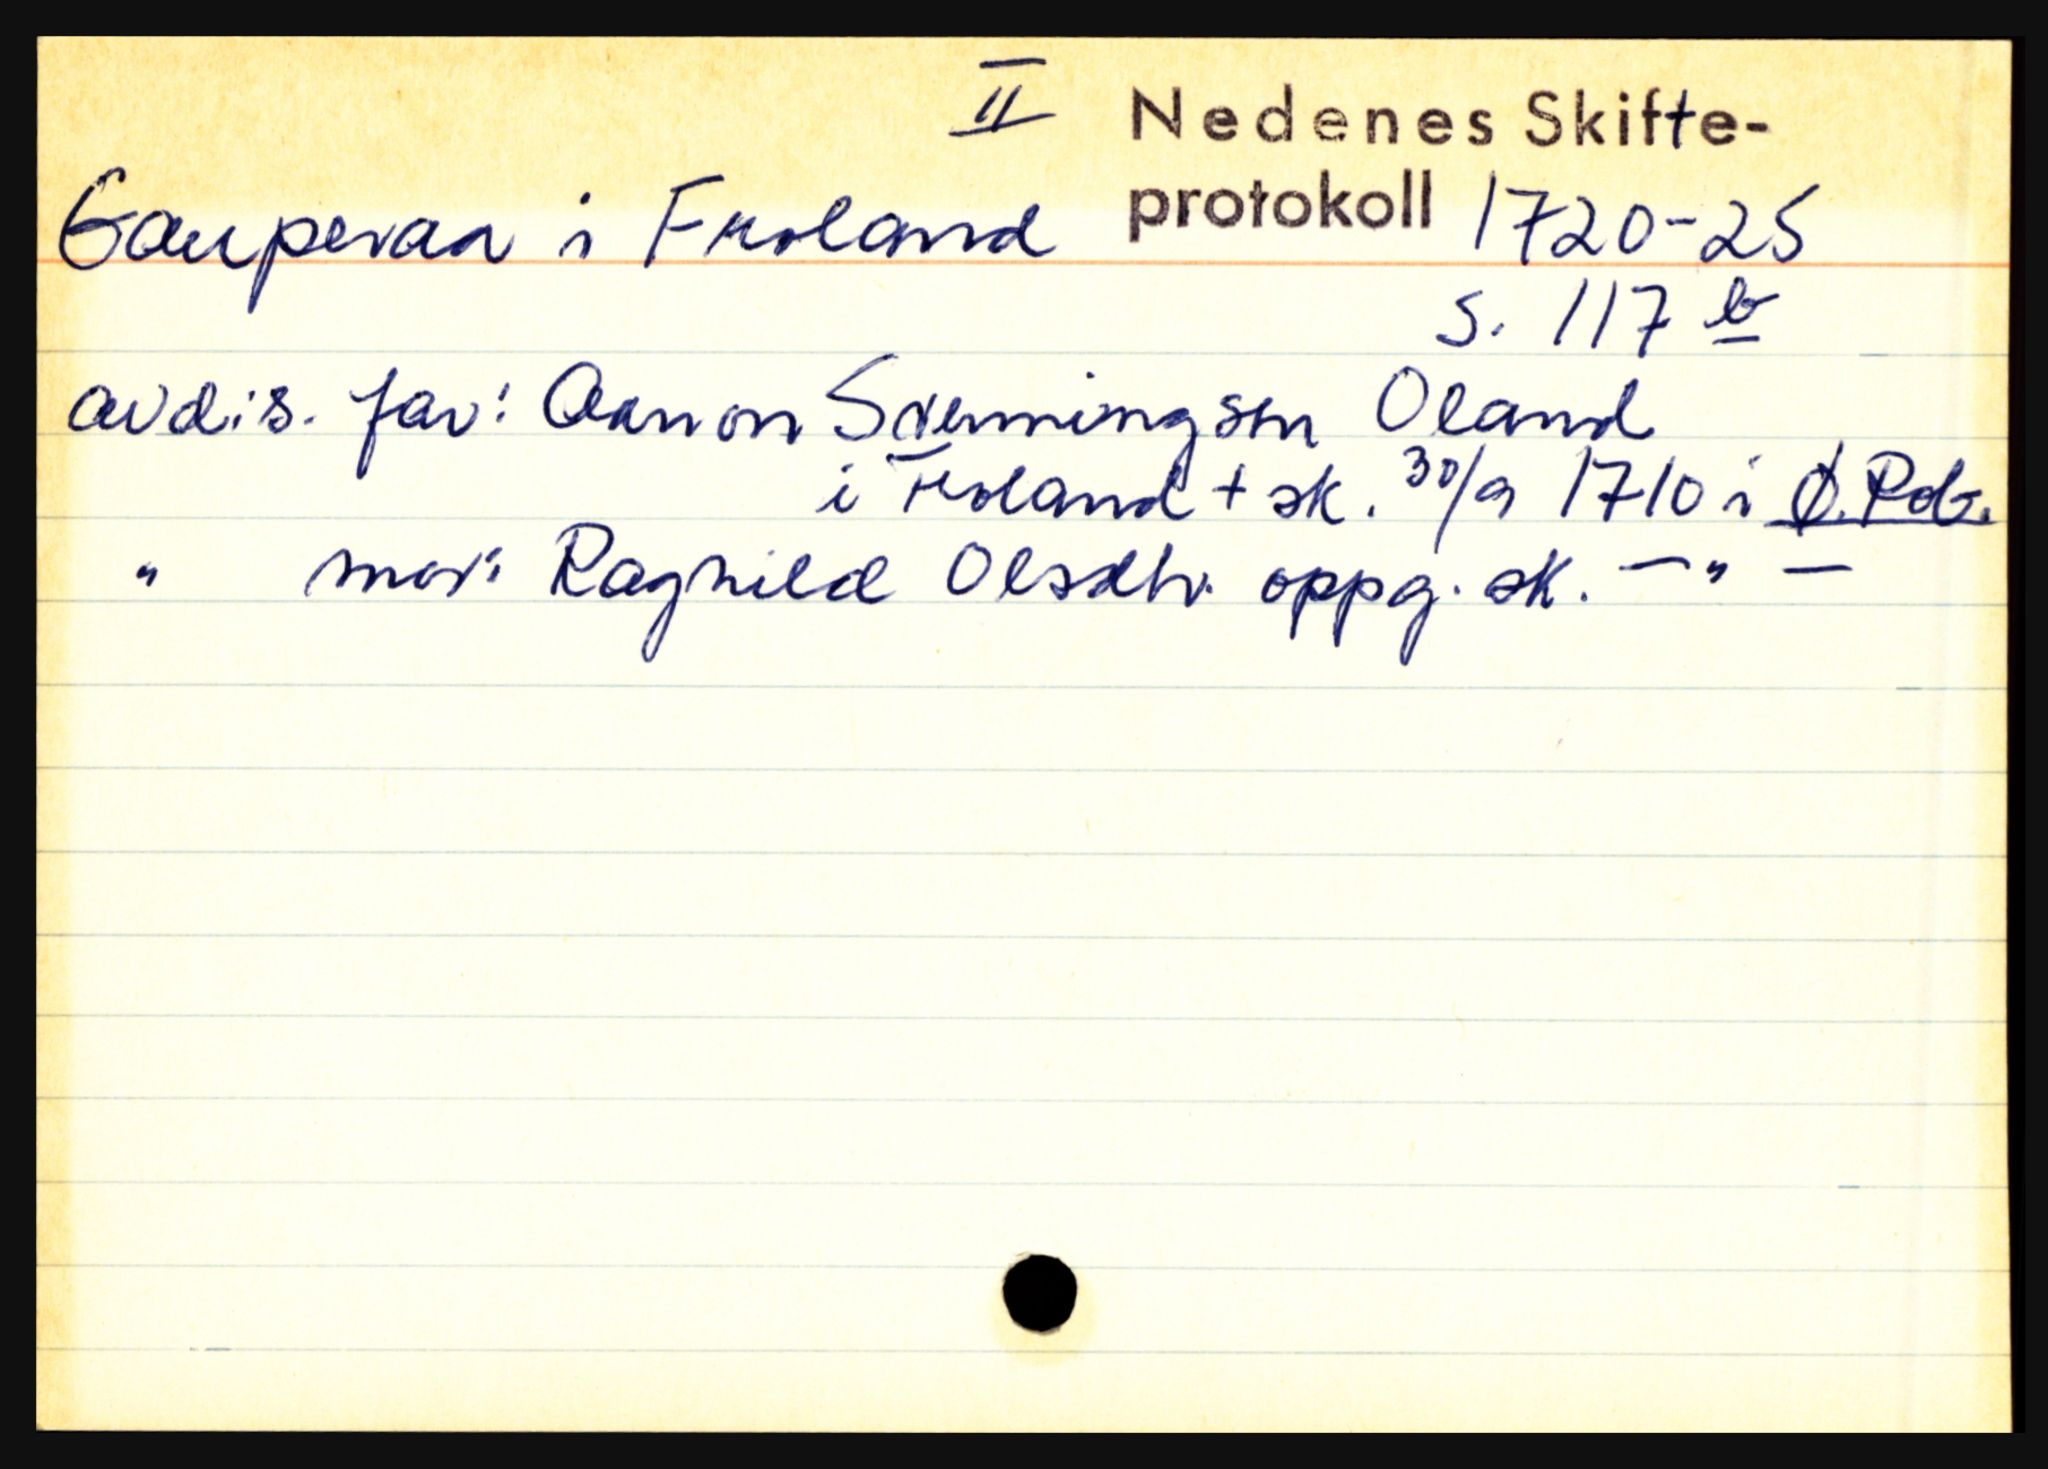 II Nedenes Skifte-
Gauperaa i Froland protokoll 1720-25
s. 117 b
avdøs. far: Aanon Svenningsen Oland
i Froland + sk. 30/9 1710 i Ø. Rdb.
" mor: Ragnild Olsdtr. oppg. sk. — " —